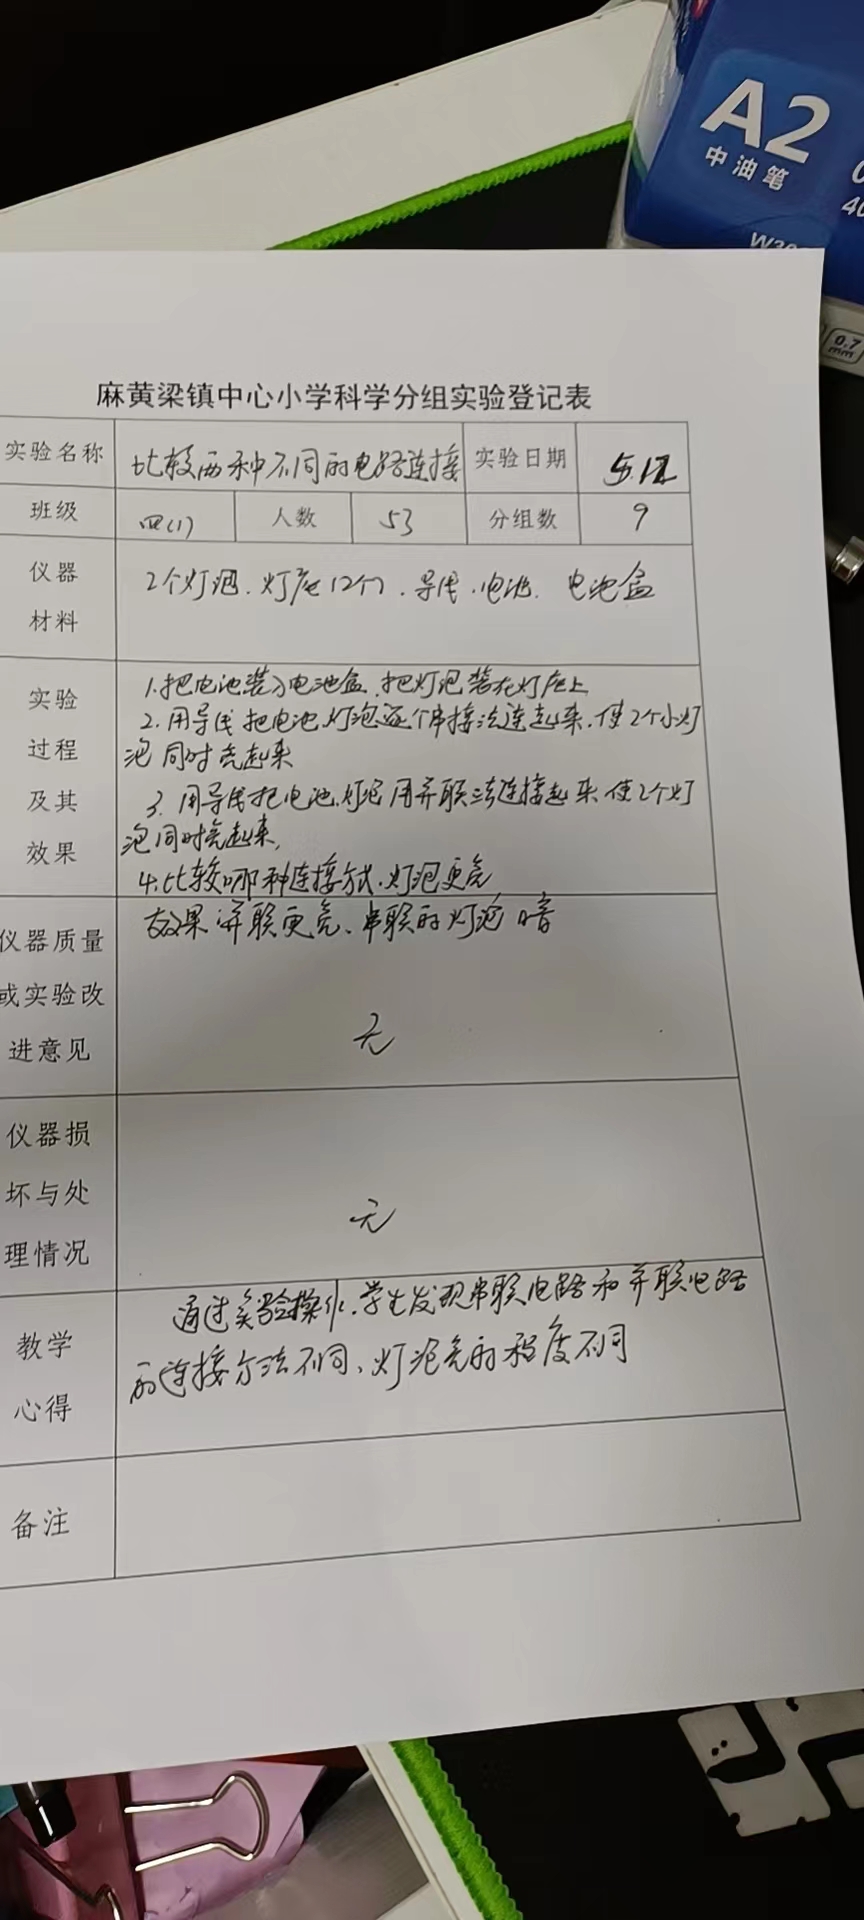 A2
中油笔
0.7
mm
麻黄梁镇中心小学科学分组实验登记表
实验名称 比较两种不同的电路连接 实验日期 5.12
班级 四(1) 人数 53 分组数 9
仪器
材料
2个灯泡、灯座(2个)、导线、电池、电池盒
实验
过程
及其
效果
1.把电池装入电池盒,把灯泡装在灯座上
2.用导线把电池、灯泡逐个串接法连起来,使2个小灯
泡同时亮起来
3.用导线把电池、灯泡用并联法连接起来,使2个灯
泡同时亮起来,
4.比较哪种连接方式,灯泡更亮
效果 并联更亮、串联的灯泡暗
仪器质量
或实验改
进意见
无
仪器损
坏与处
理情况
无
教学
心得
通过实验操作,学生发现串联电路和并联电路
的连接方法不同、灯泡亮的程度不同
备注